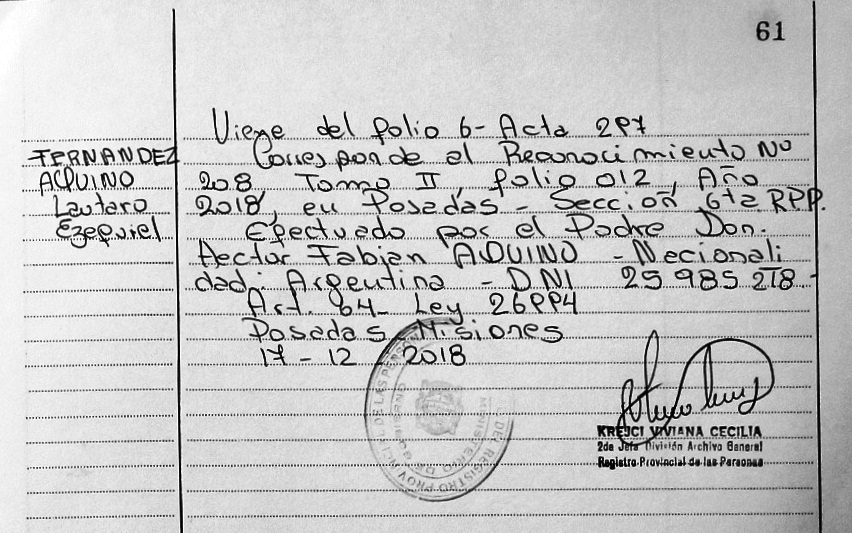 61
Viene del folio 6- Acta 297
FERNANDEZ
AQUINO
Lautaro
Ezequiel
Corresponde al Reconocimiento Nº
208, Tomo II, folio 012, Año
2018, en Posadas - Sección 6ta RPP.
Efectuado por el Padre Don.
Hector Fabian AQUINO - Nacionali
dad: Argentina - DNI 25 985 278 -
Art. 64- Ley 26994
Posadas Misiones
17 - 12 2018
KREJCI VIVIANA CECILIA
2da Jefa División Archivo General
Registro Provincial de las Personas
DEL REGISTRO PROVINCIAL DE LAS PERSONAS
MINISTERIO DE GOBIERNO